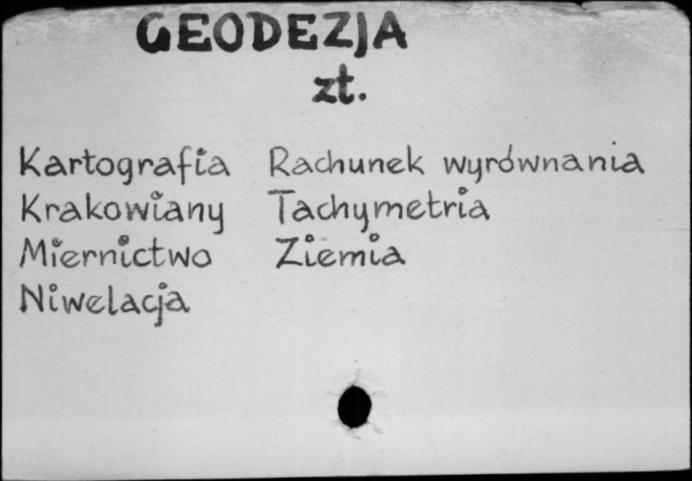 GEODEZJA
zt.
Kartografia Rachunek wyrównania
Krakowiany Tachymetria
Miernictwo Ziemia
Niwelacja